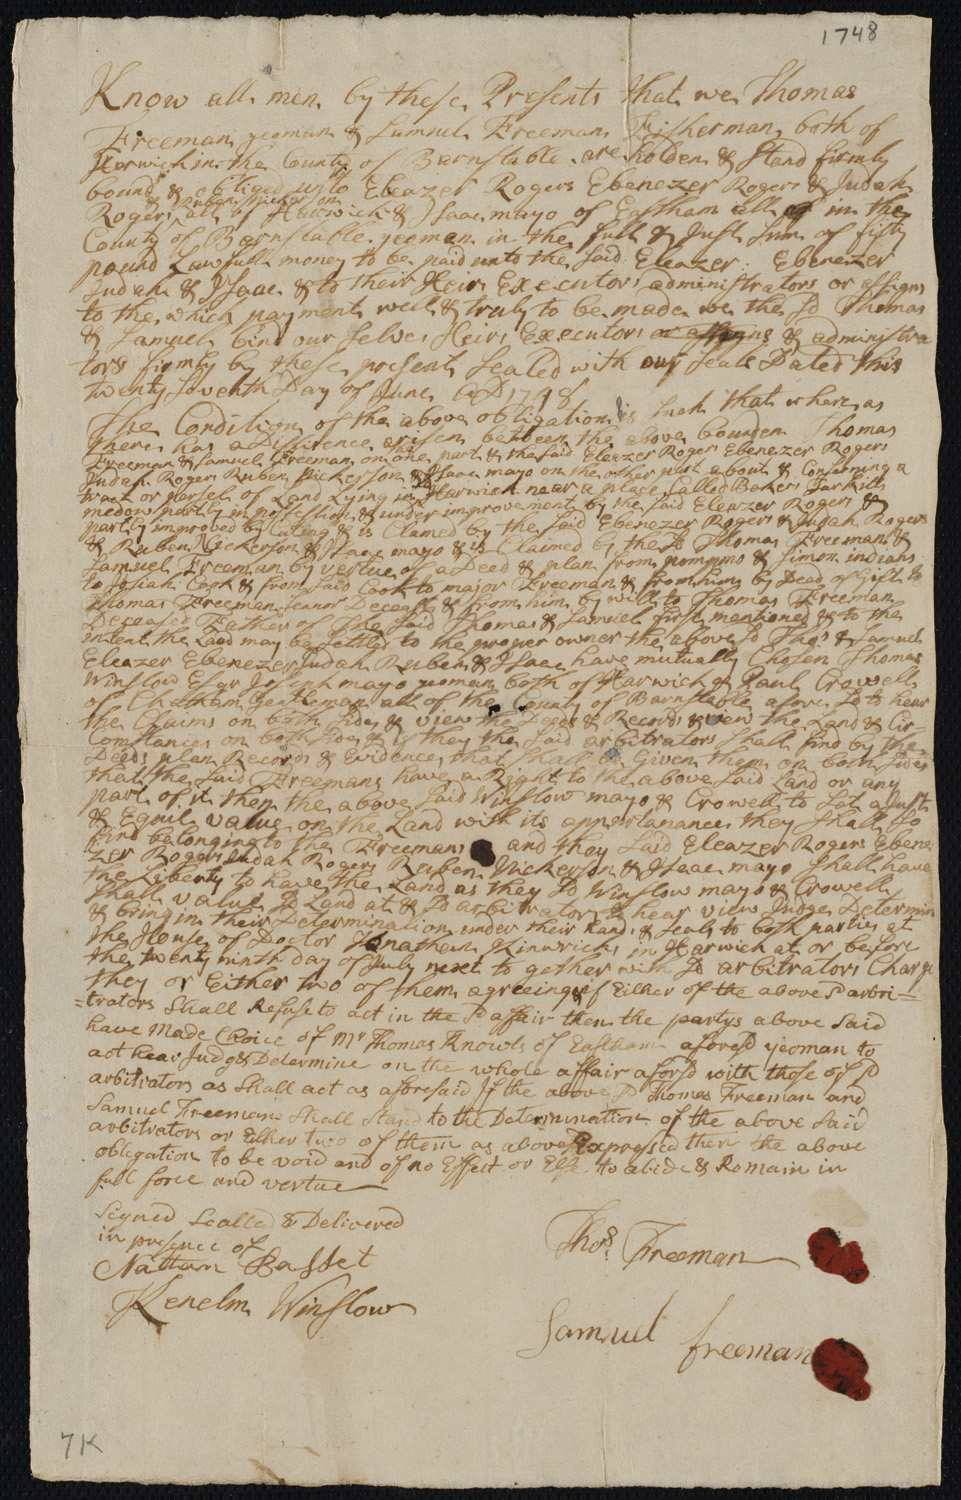 1748
Know all men by these Presents that we Thomas
Freeman yeoman & Samuel Freeman Fisherman both of
Harwich in the County of Barnstable are holden & Stand firmly
bound & obliged unto Eleazer Rogers Ebenezer Rogers & Judah
Ruben Nickerson
Rogers all of Harwich & Isaac mayo of Eastham all in the
County of Barnstable yeomen in the full & Just Sum of fifty
pound Lawfull money to be paid unto the said Eleazer Ebenezer
Judah & Isaac & to their Heirs Executors administrators or assigns
to the which payment well & truly to be made we the Sd Thomas
& Samuel bind our selves Heirs Executors or assigns & administra
tors firmly by these presents Sealed with our Seals Dated this
twenty Seventh Day of June AD 1748
The Condition of the above obligation is Such that whereas
there has a Difference arisen between the above bounden Thomas
Freeman & Samuel Freeman on the one part & the said Eleazer Rogers Ebenezer Rogers
Judah Rogers Ruben Nickerson & Isaac mayo on the other part about & Concerning a
tract or parsel of Land Lying in Harwich near a place Called Bakers
medow partly in possession & under improvement by the said Eleazer Rogers &
partly improved by & is Clamed by the said Ebenezer Rogers & Judah Rogers
& Ruben Nickerson & Isaac mayo & is Claimed by the Sd Thomas Freeman &
Samuel Freeman by vertue of a Deed & plan from pompmo & Simon indians
to Josiah Cook & from said Cook to major Freeman & from him by Deed of Gift to
Thomas Freeman senor Deceast & from him by will to Thomas Freeman
Deceased Father of the said Thomas & Samuel first mentioned & to the
intent the Land may be settled to the proper owner the above Sd Thos & Samuel
Eleazer Ebenezer Judah Ruben & Isaac have mutually Chosen Thomas
Winslow Esqr Joseph mayo yeoman both of Harwich & Paul Crowell
of Chatham Gentleman all of the County of Barnstable afore Sd to hear
the Claims on both sides & view the Deeds & Records & view the Land & Cir-
Comstances on both sides & if they the said arbitrators shall find by the
Deeds plan Records & Evidences that shall be Given them on both sides
that the said Freemans have a Right to the above said Land or any
part of it then the above said Winslow mayo & Crowell to Set a Just
& Equil value on the Land with its appertanances they shall so
find belonging to the Freemans and they said Eleazer Rogers Ebene
zer Rogers Judah Rogers Ruben Nickerson & Isaac mayo shall have
the Liberty to have the Land as they Sd Winslow mayo & Crowell
shall value Sd Land at & Sd arbitrators to hear view Judge Determin
& bring in their Determination under their hands & seals to both parties at
the House of Doctor Jonathan Kinwrick in Harwich at or before
the twenty ninth day of July next to gether with Sd arbitrators Charge
they or Either two of them agreeing & if Either of the above Sd arbi-
=trators Shall Refuse to act in the Sd affair then the partys above Said
have Made Choice of Mr Thomas Knowls of Eastham aforesd yeoman to
act hear Judg & Determine on the whole affair aforsd with those of Sd
arbitrators as shall act as aforesaid If the above Sd Thomas Freeman and
Samuel Freeman Shall Stand to the Determination of the above Said
arbitrators or Either two of them as above Expressed then the above
obligation to be void and of no Effect or Else to abide & Remain in
full force and vertue
Signed Sealled & Delivered
in presence of
Nathan Basset
Kenelm Winslow
Thos. Freeman
Samuel freeman
7K